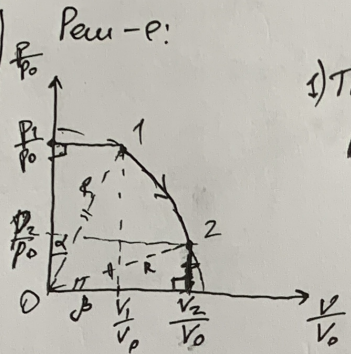 Реш-е:
p/p₀
1) Т
p₁/p₀
1
R
p₂/p₀
2
α
R
0
β
V₁/V₀
V₂/V₀
V/V₀